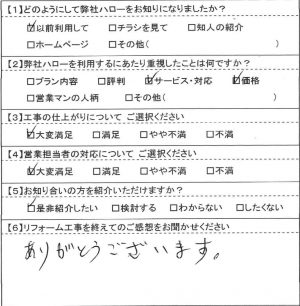 【1】どのようにして弊社ハローをお知りになりましたか？
☑以前利用して □チラシを見て □知人の紹介
□ホームページ □その他( )
【2】弊社ハローを利用するにあたり重視したことは何ですか？
□プラン内容 □評判 ☑サービス・対応 ☑価格
□営業マンの人柄 □その他( )
【3】工事の仕上がりについて ご選択ください
☑大変満足 □満足 □やや不満 □不満
【4】営業担当者の対応について ご選択ください
☑大変満足 □満足 □やや不満 □不満
【5】お知り合いの方を紹介いただけますか？
☑是非紹介したい □検討する □わからない □したくない
【6】リフォーム工事を終えてのご感想をお聞かせください
ありがとうございます。